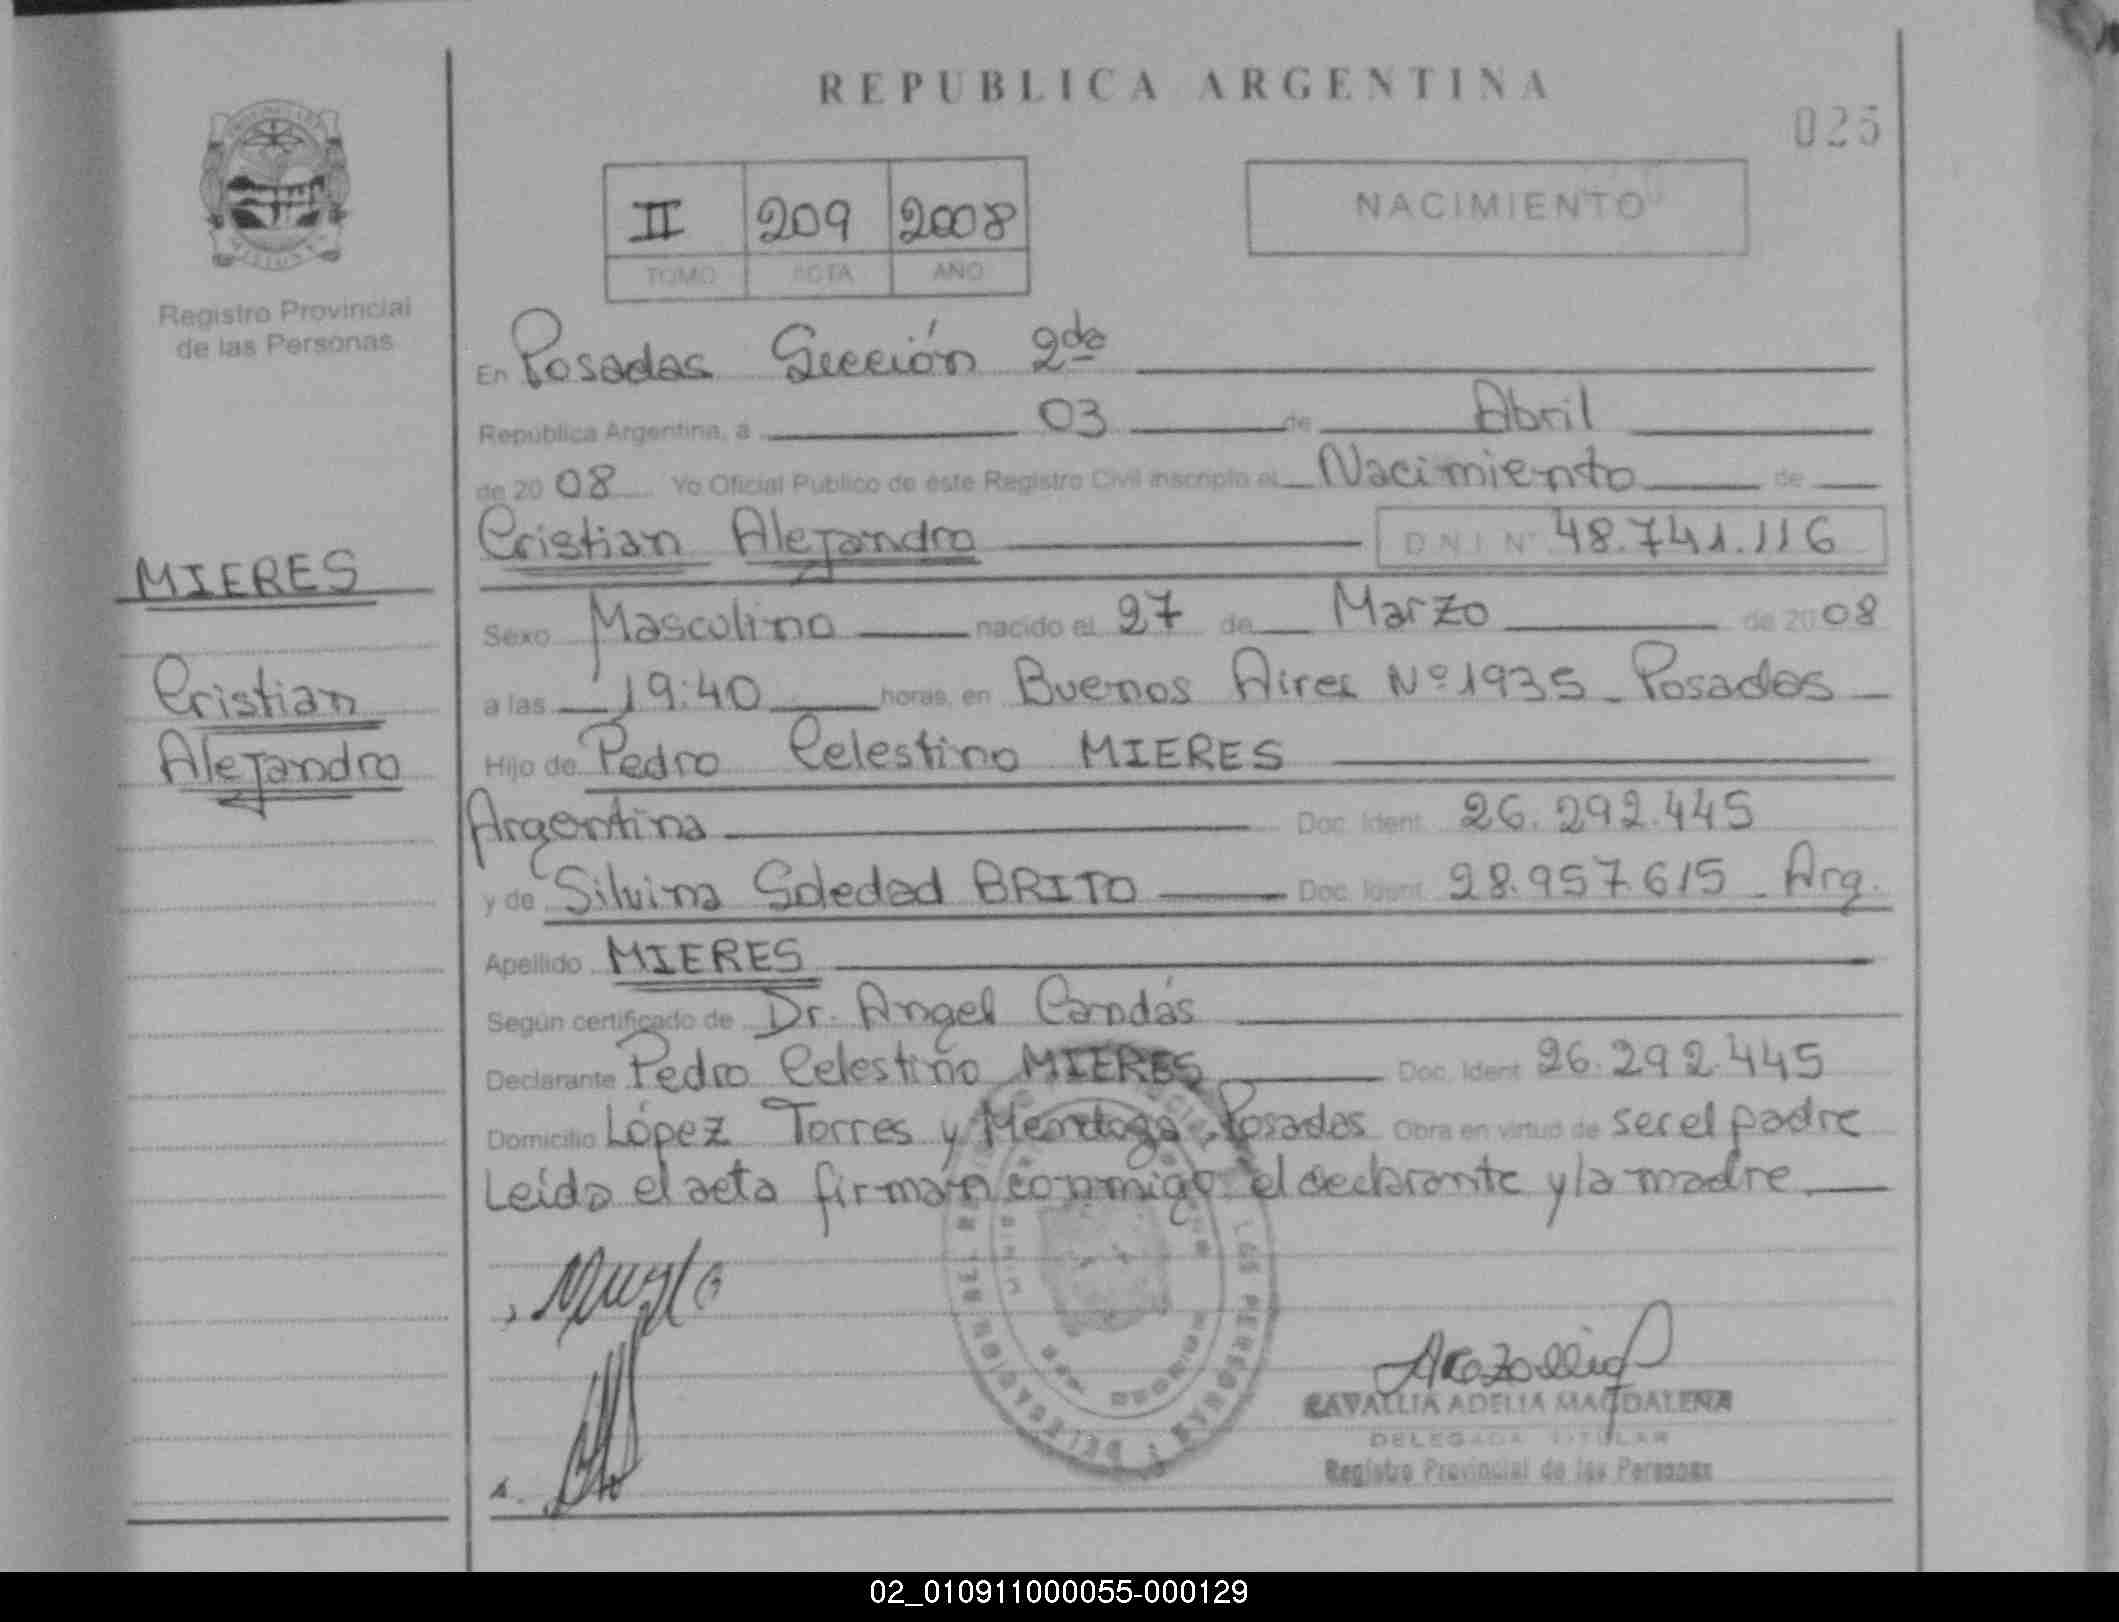 REPUBLICA ARGENTINA
025
II 209 2008
TOMO ACTA AÑO
NACIMIENTO
Registro Provincial
de las Personas
En Posadas Sección 2da
República Argentina, a 03 de Abril
de 2008 Yo Oficial Publico de éste Registro Civil inscripto el Nacimiento de
Cristian Alejandro D N I N° 48.741.116
MIERES
Cristian
Alejandro
Sexo Masculino nacido el 27 de Marzo de 2008
a las 19:40 horas, en Buenos Aires Nº 1935 - Posadas
Hijo de Pedro Celestino MIERES
Argentina Doc. Ident. 26.292.445
y de Silvina Soledad BRITO Doc. Ident. 28.957.615 - Arg.
Apellido MIERES
Según certificado de Dr. Angel Candás
Declarante Pedro Celestino MIERES Doc. Ident. 26.292.445
Domicilio López Torres y Mendoza, Posadas Obra en virtud de ser el padre
Leída el acta firman conmigo el declarante y la madre
RAVALLIA ADELIA MAGDALENA
DELEGADA TITULAR
Registro Provincial de las Personas
02_010911000055-000129